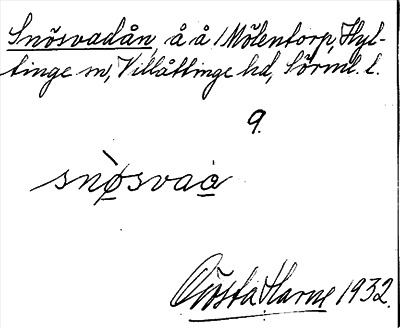 Snösvadån, å å / Mölentorp, Hyl-
tinge sn, Villåttinge hd, Sörml. l.
9.
snø̀svaa
Gösta Harne 1932.